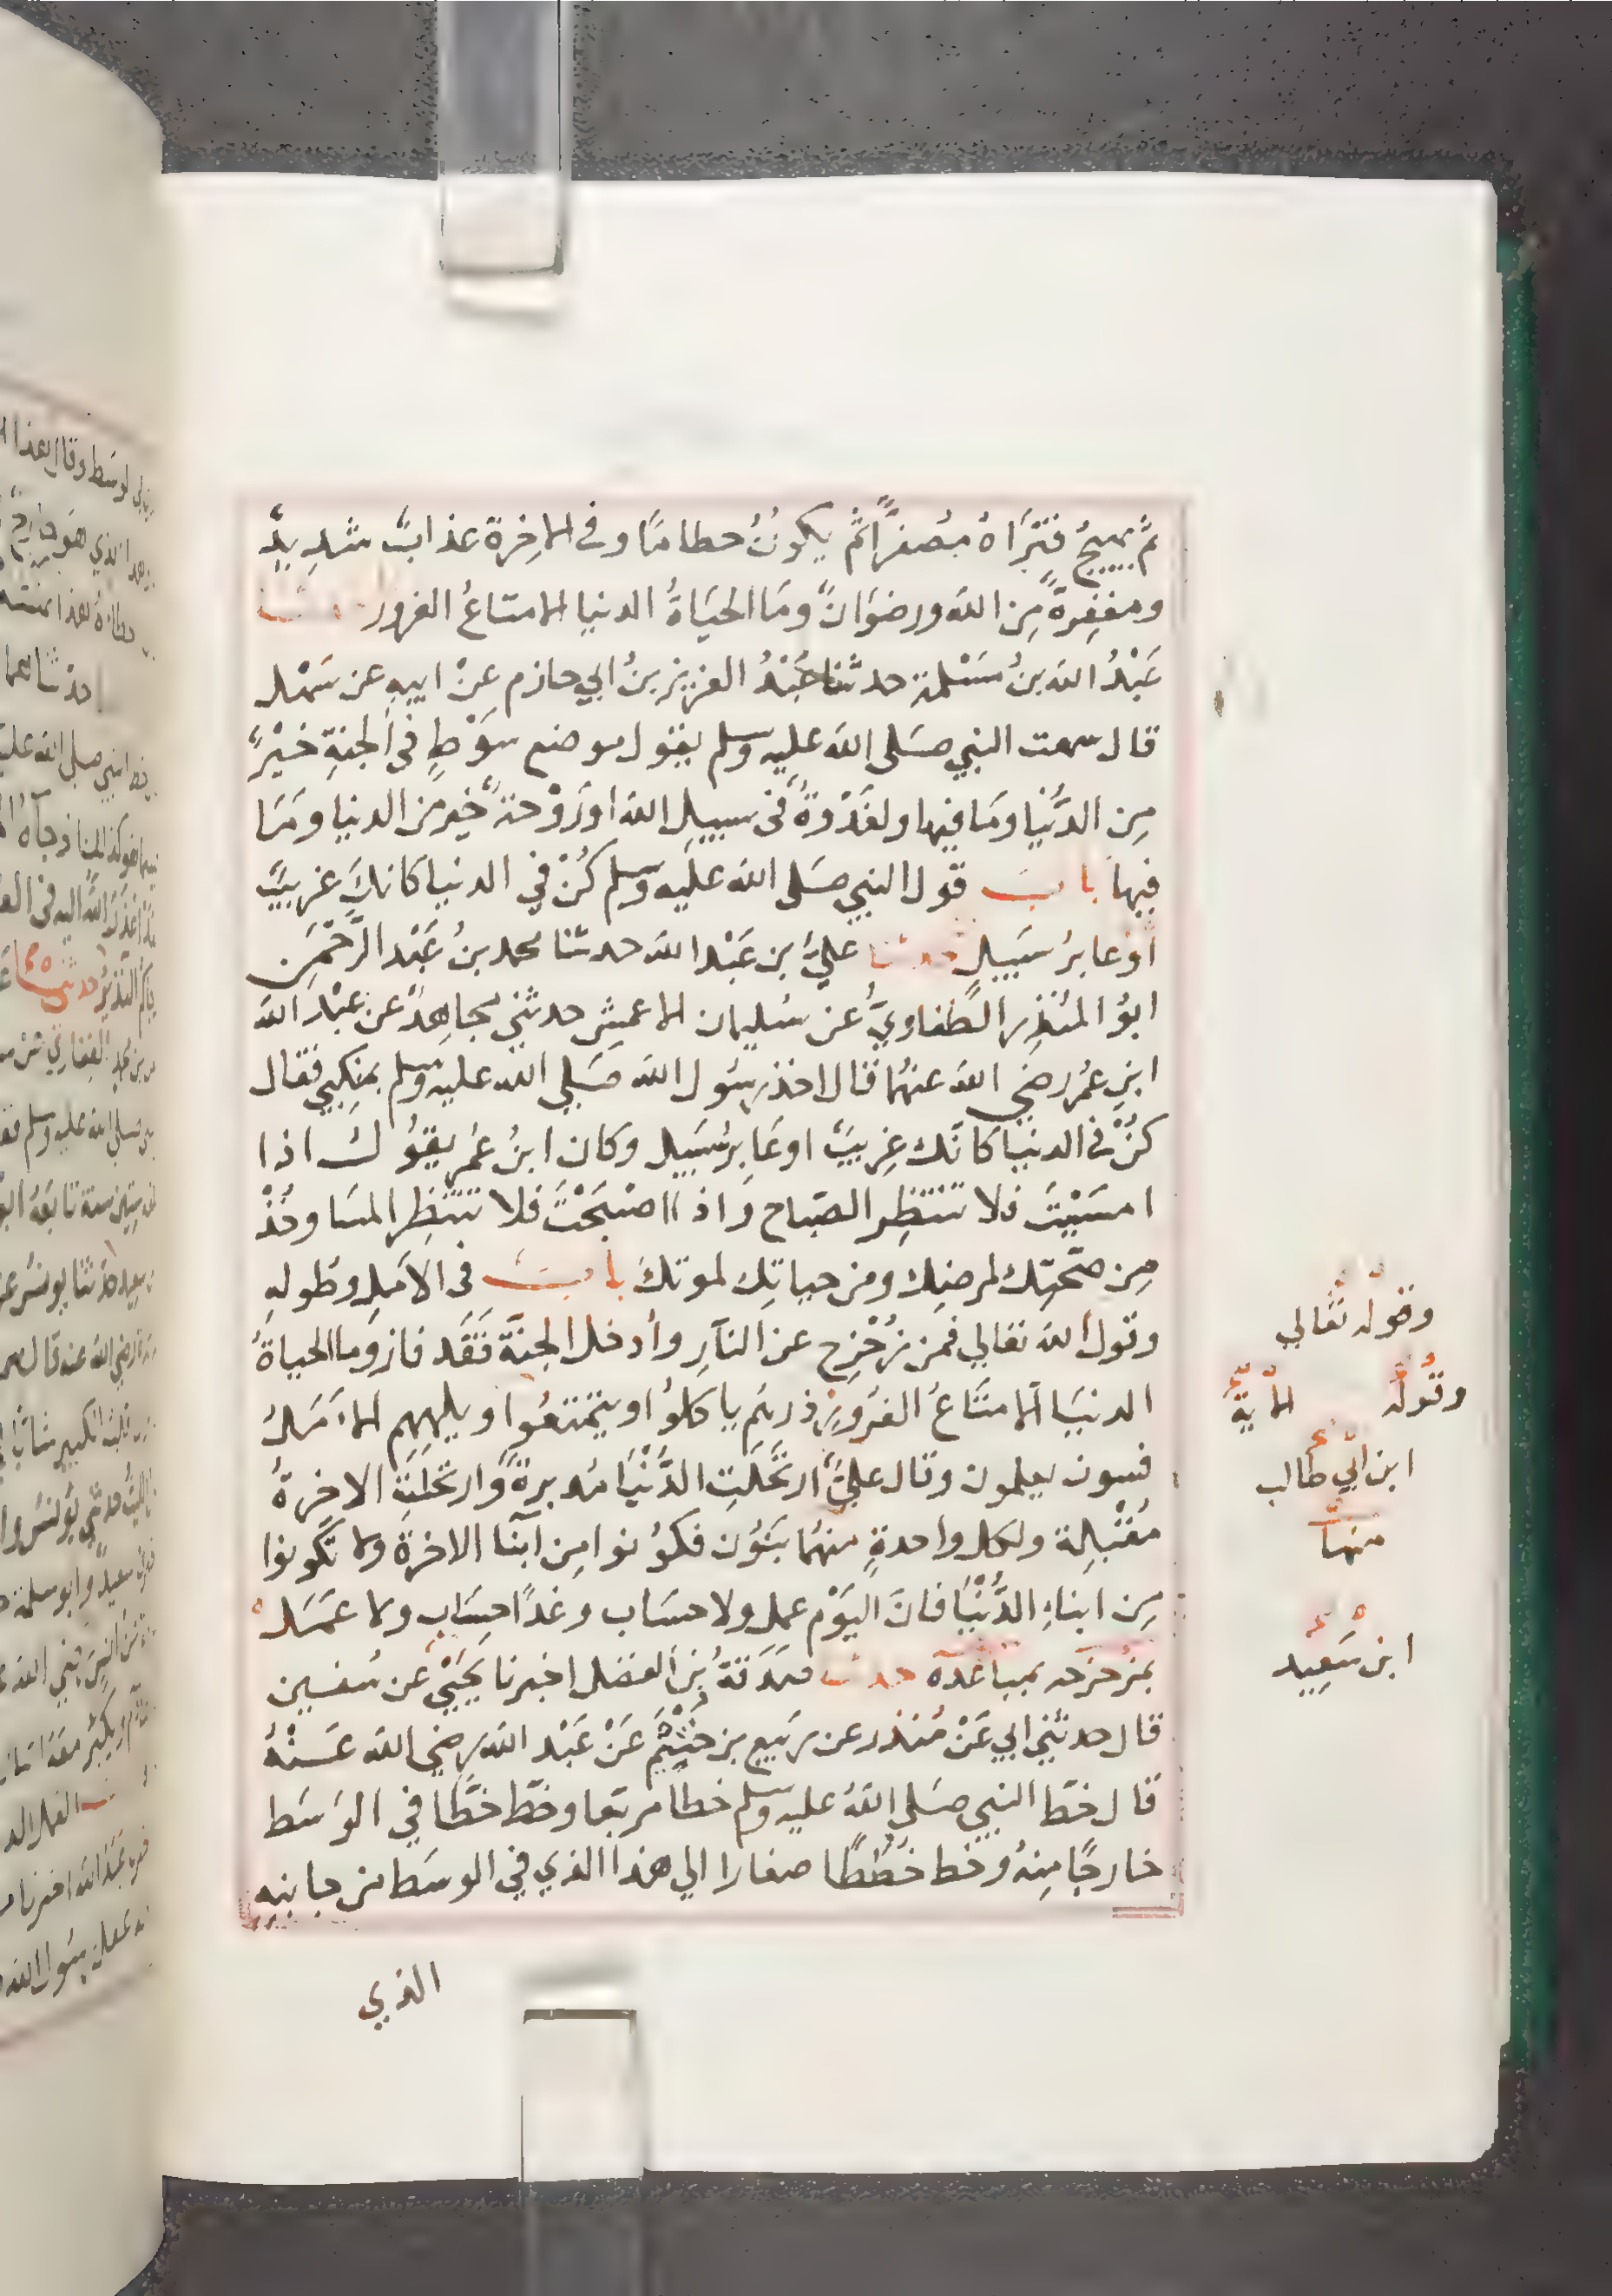 ثم يهيجُ فَتَرَاهُ مُصفرًّا ثم يكونُ حطامًا وفي الاخِرة عذابٌ شدِيدٌ
ومغفِرةٌ مِن الله ورضوَانٌ ومَا الحيَاةُ الدنيا الا متاعُ الغرور حدثنا
عَبْدُ الله بنُ مَسْلمة حدثنا عَبْدُ العزيز بنُ ابي حازم عِنْ ابيهِ عن سَهْل
قال سمعت النبي صَلى الله عليه وسلم يقول موضع سَوْطٍ في الجنةِ خيْرٌ
مِن الدُّنيا ومَا فيها ولغَدْوةٌ في سبيلِ الله اورَوْحةٌ خير من الدنيا ومَا
فيها بابُ قول النبي صَلى الله عليه وسلم كُنْ في الدنيا كانكَ غريبٌ
اوْ عابرُ سَبيلٍ حدثنا عليُّ بن عَبْد الله حدثنا محمد بنُ عَبْد الرَّحْمَن
ابوُ المُنْذِر الطُّفاويُّ عن سُليمان الاعمِش حدثني مجاهِدٌ عن عبْد الله
ابنِ عُمَر رضي الله عنهُما قال اخذ رسَول الله صَلي الله عليه وسلم بمنكِبِي فقال
كُنْ في الدنيا كانَّك غِريبٌ اوعَابِرُ سَبيل وكان ابنُ عُمَر يقوُل اذا
امسَيْتَ فلا تنتظِر الصّباح واذا اصْبَحْتَ فلا تنتَظِر المسَا وخُذْ
مِن صحّتِك لمرضِك ومن حياتِك لموتكَ بابُ في الاَمَلِ وطُولهِ
وقول الله تعالي فمن زُحْزِح عن النَّارِ وأدخل الجنَّة فَقَد فاز وما الحياةُ
الدنيَا الا متَاعُ الغُرورِ ذرهُم ياكلوُا ويتمتعُوا ويلهِهِم الاَمَلُ
فسوف يعلمون وقال عليٌّ ارتَحَلَتِ الدُّنْيَا مُدبرةً وَارتحَلَتِ الاخرةُ
مُقْبِلة ولكل واحدةٍ منهُما بَنوُن فكوُنوا مِن ابنآ الاخرة ولا تكونوا
مِن ابناءِ الدُّنْيَا فانَ اليَوْم عمل ولا حسَاب وغدًا حِسَاب ولا عمَل
بمُزحزحه بمباعدة حدثنا صَدَقةُ بن الفضل اخبرنا يَحْيَي عن سُفيين
قال حدثني ابي عَنْ مُنذر عن ربيع بن خُثيْم عَنْ عَبْد الله رضي الله عَنهُ
قال خطّ النبي صَلى اللهُ عليه وسلم خطا مربّعا وخطّ خطًّا في الوَسَط
خارجًا مِنهُ وخط خُطُطًا صغارا الي هذا الذي في الوسَط من جانبهِ
الذي
وقولهِ تعَالي
وقُولُهُ الايةَ
ابن ابي طالب
منهَا
ابن سَعِيد